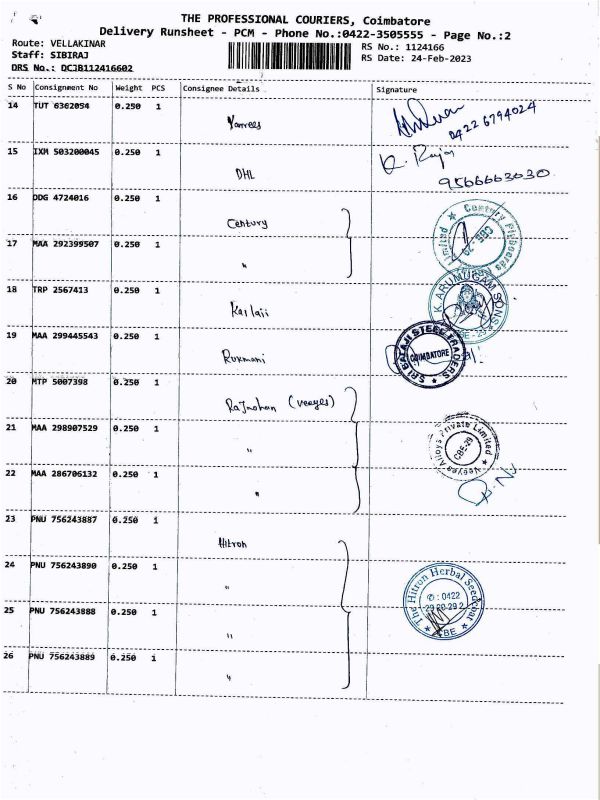 THE PROFESSIONAL COURIERS, Coimbatore
Delivery Runsheet - PCM - Phone No.:0422-3505555 - Page No.:2
Route: VELLAKINAR
Staff: SIBIRAJ
DRS No.: DCJB112416602
RS No.: 1124166
RS Date: 24-Feb-2023
S No Consignment No Weight PCS Consignee Details Signature
14 TUT 6362054 0.250 1
0422 6794024
15 IXM 503200045 0.250 1 DHL
K. Raja
9566663030
16 DDG 4724016 0.250 1 Century
Century Flyboards Limited
CBE-29
17 MAA 292399507 0.250 1 "
18 TRP 2567413 0.250 1 Kailaii
K. ARUMUGAM SONS
CBE-29
19 MAA 299445543 0.250 1 Rukmani
SRI BALAJI STEEL TRADERS
COIMBATORE
20 MTP 5007398 0.250 1 Rajmohan (veeyes)
21 MAA 298907529 0.250 1 "
Alloys Private Limited
CBE-29
22 MAA 286706132 0.250 1 "
23 PNU 756243887 0.250 1 Hitron
24 PNU 756243890 0.250 1 "
The Hitron Herbal
✆ : 0422
CBE
25 PNU 756243888 0.250 1 "
26 PNU 756243889 0.250 1 "